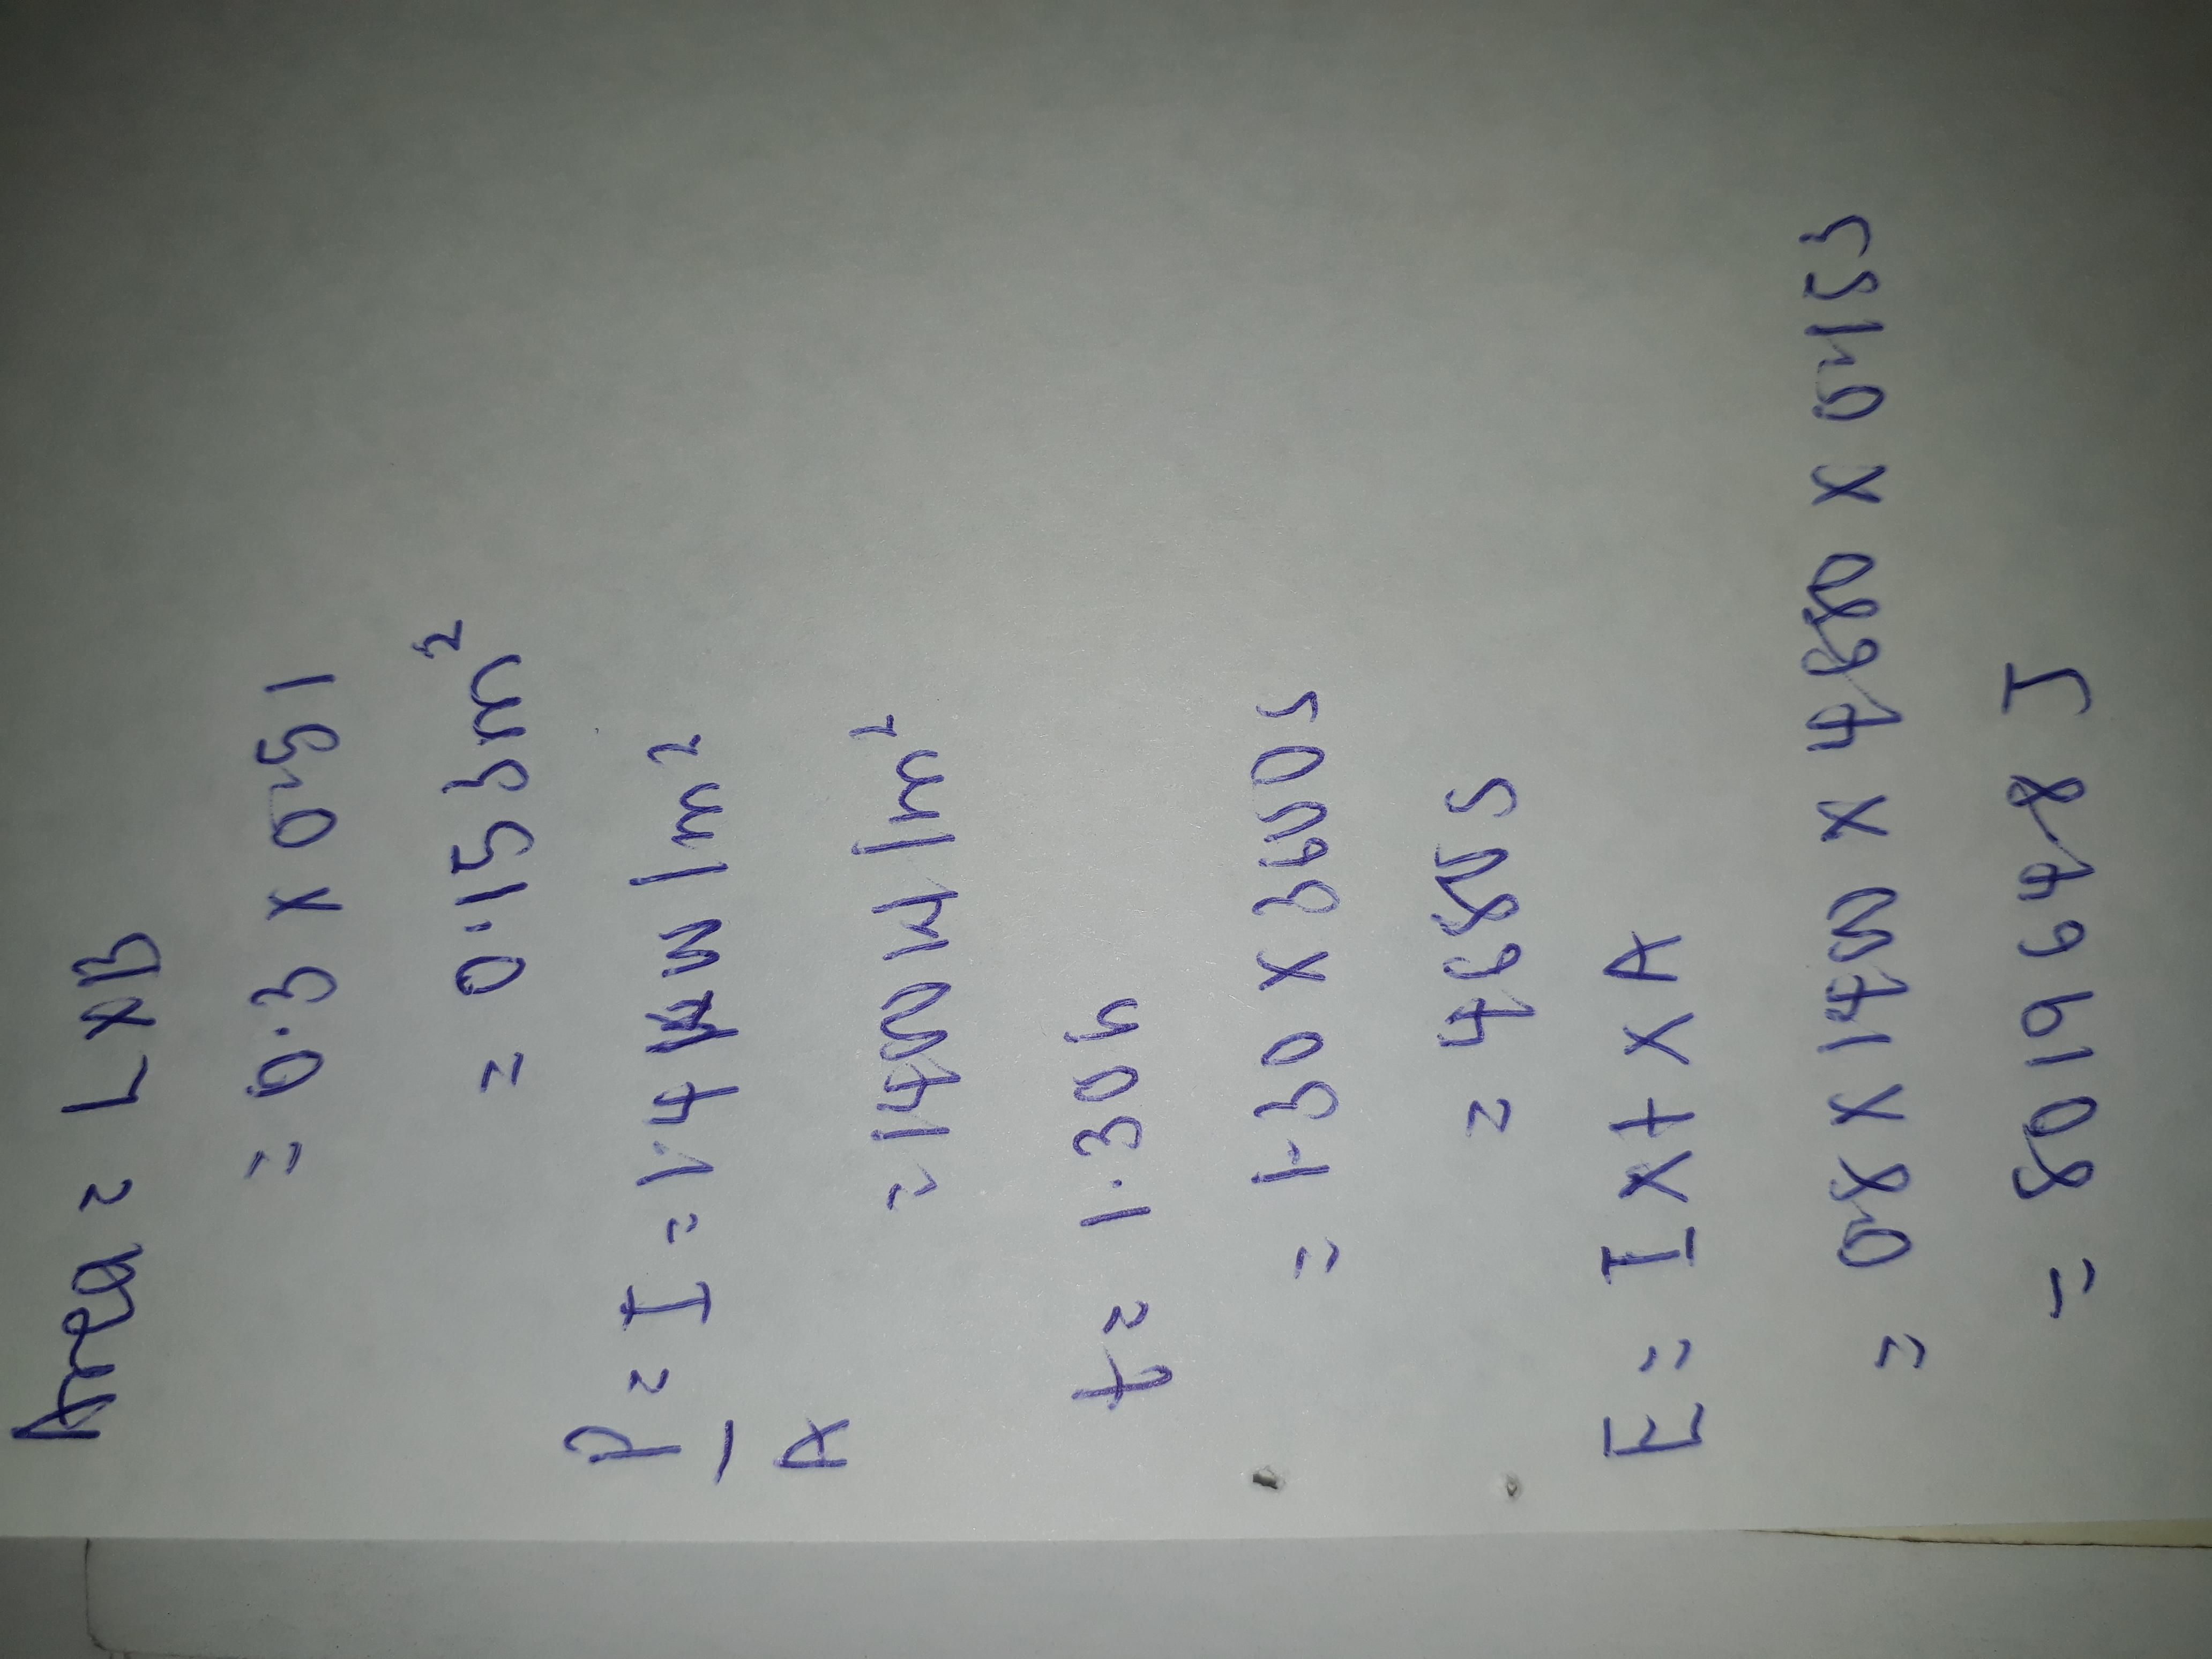 Area = L x B
= 0.3 x 0.51
= 0.153 m²
P/A = I = 1.4 kW/m²
= 1400 W/m²
t = 1.30 h
= 1.30 x 3600 s
= 4680 s
E = I x t x A
= 0.8 x 1400 x 4680 x 0.153
= 801964.8 J